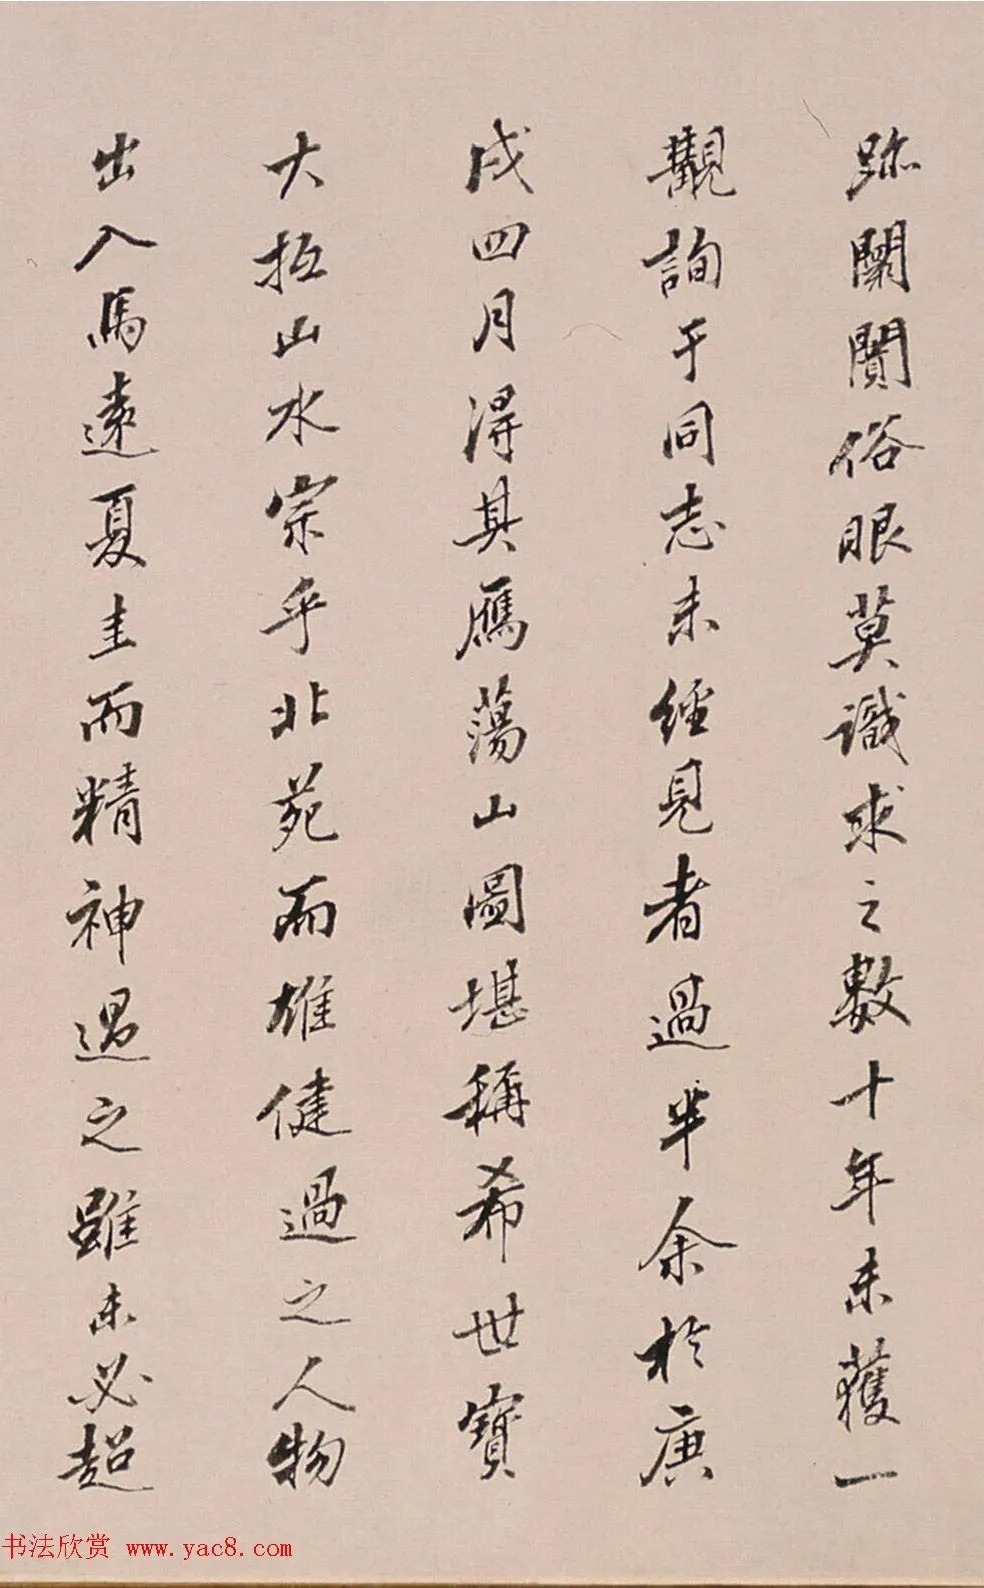 跡闃闠俗眼莫識求之數十年未獲一
觀詢于同志未經見者過半余於庚
戌四月得其鴈蕩山圖堪稱希世寶
大抵山水宗乎北苑而雄健過之人物
出入馬遠夏圭而精神過之雖未必超
书法欣赏 www.yac8.com